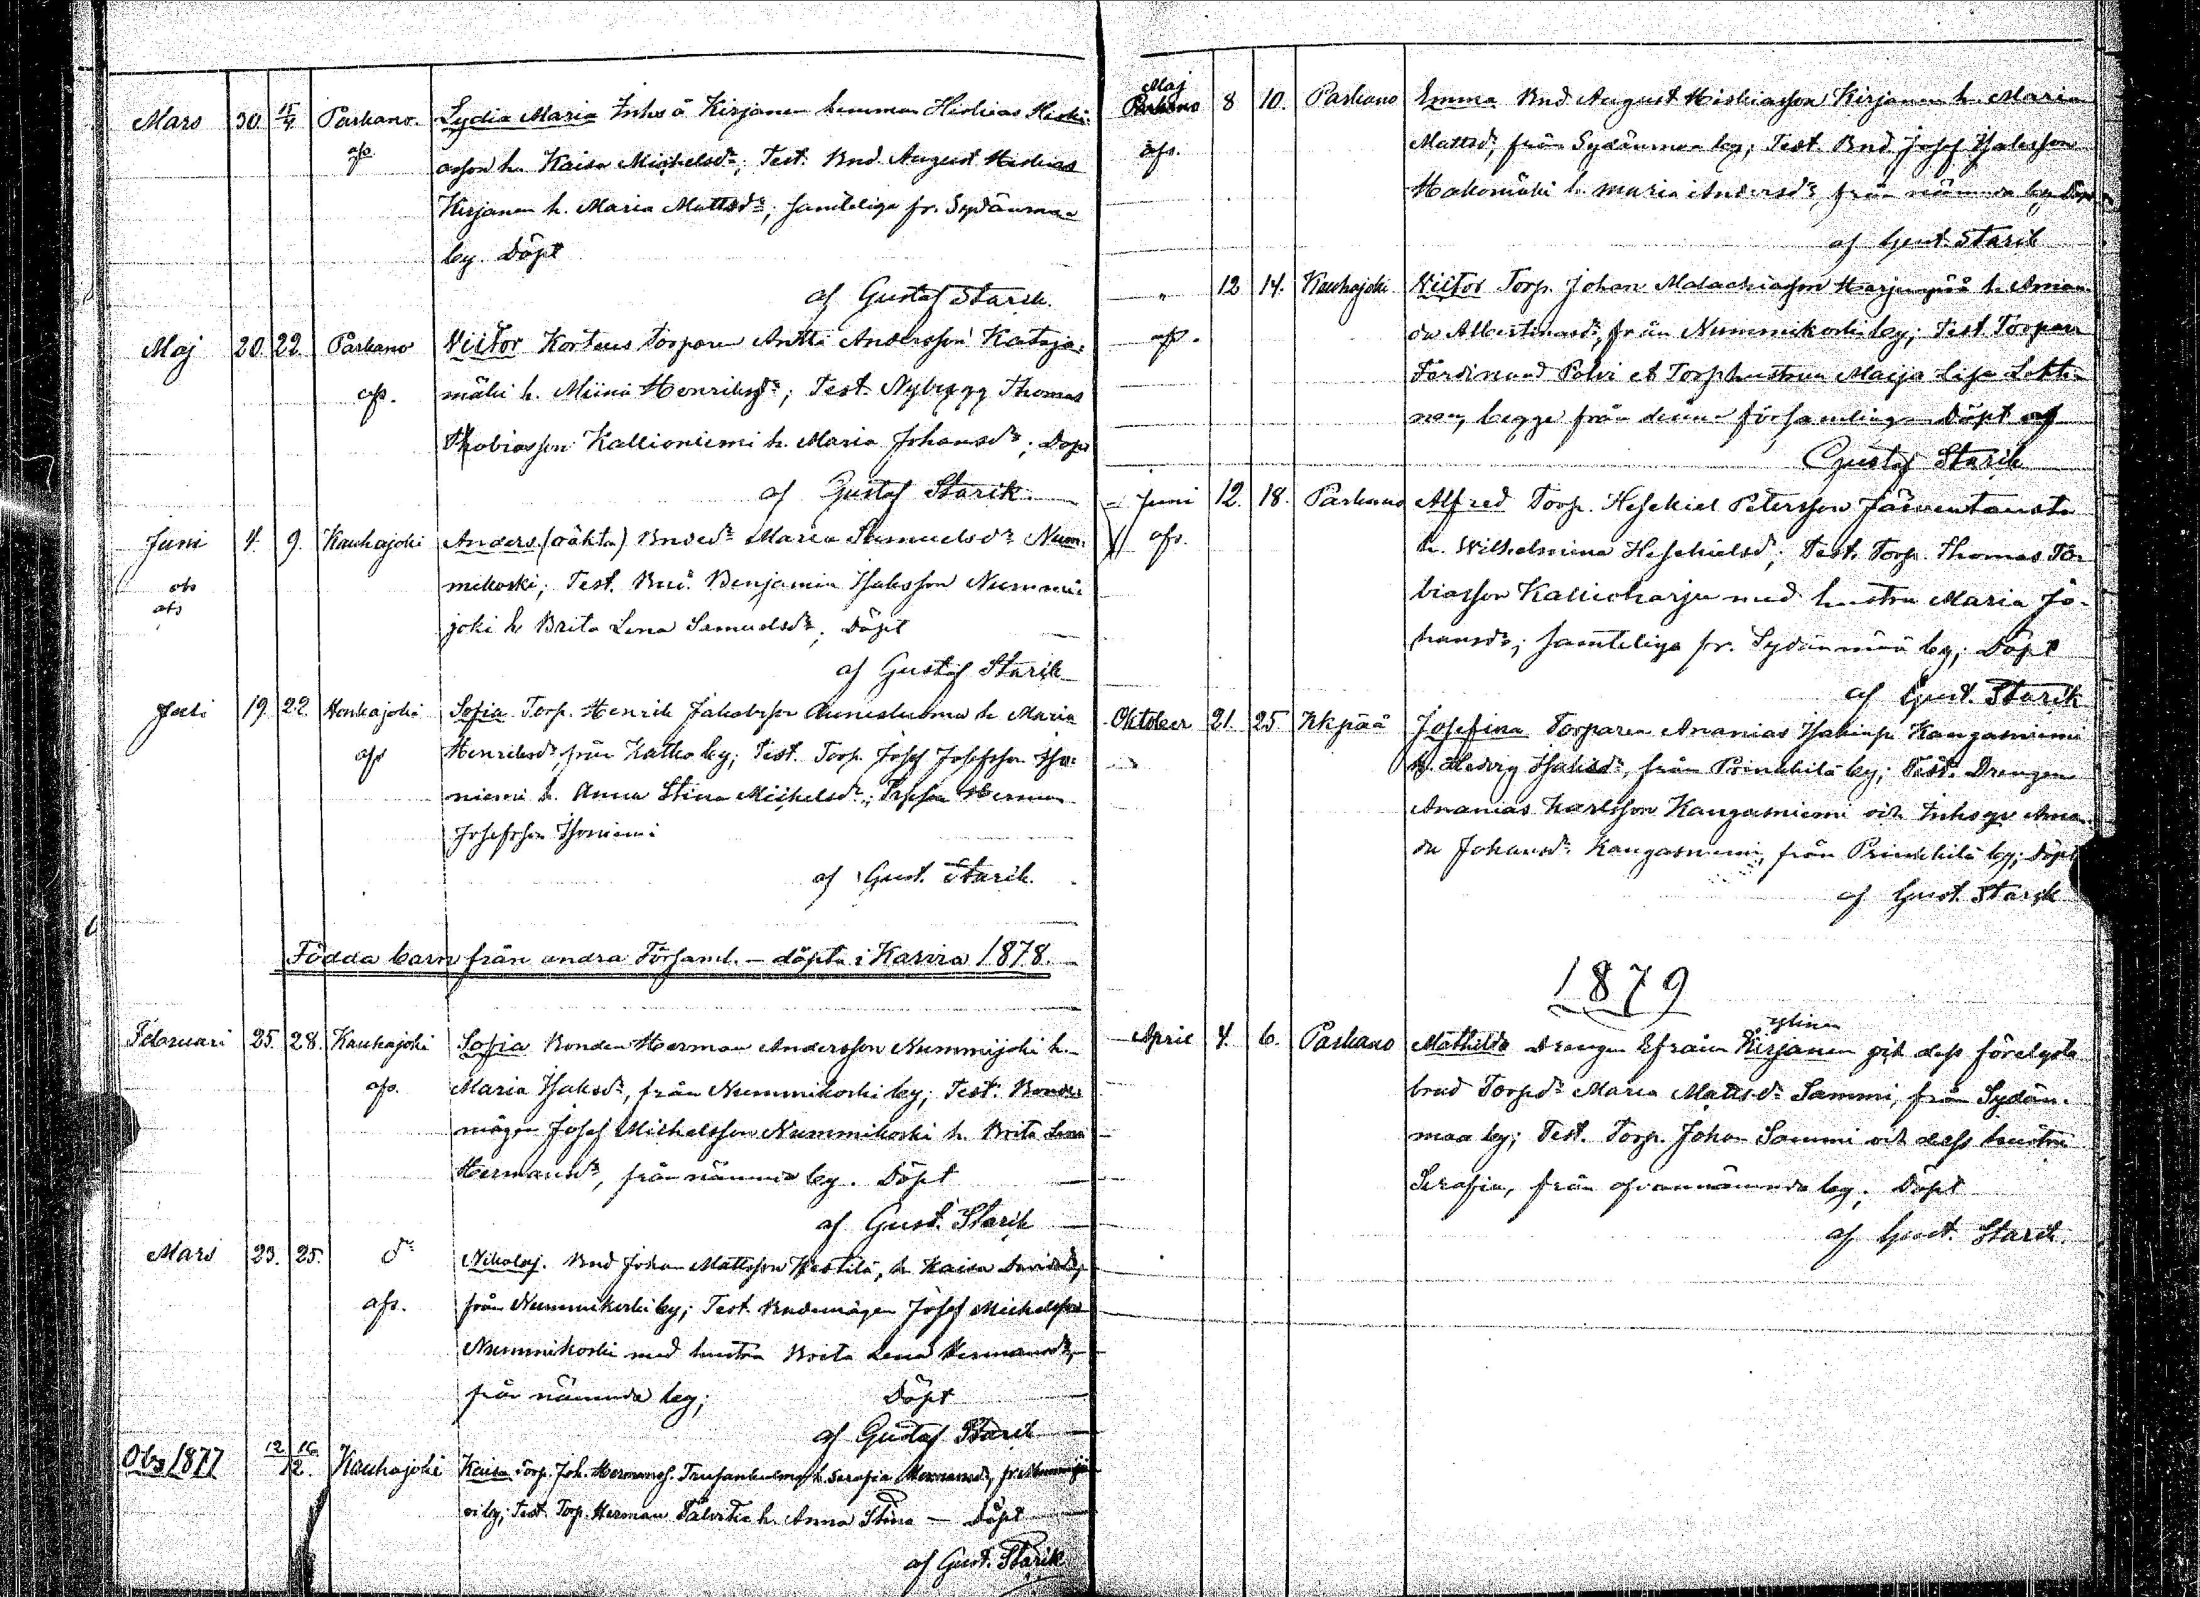 Mars 30. 15/4 Parkano. Lydia Maria Inhs å Kirjanen hemman Hiskias Hiski-
afs asson h. Kaisa Michelsdr; Test. Bnd. August Hiskias
Kirjanen h. Maria Mattsdr; samteliga fr. Sydänmaa
by. Döpt
af Gustaf Starck.
Maj 20 22. Parkano Victor Korteus torparen Antti Andersson Kataja-
afs. mäki h. Miina Henriksdr; Test. Nybygg Thomas
Thobiasson Kallioniemi h. Maria Johansdr; Döpt
af Gustaf Starck.
Juni 4. 9. Kauhajoki Anders. (oäkta) Bndedr Maria Samuelsdr Num-
obs mikoski; Test. Bnd. Benjamin Isaksson Nummi-
afs joki h. Brita Lena Samuelsdr; Döpt
af Gustaf Starck
Juli 19 22. Honkajoki Sofia Torp. Henrik Jakobsson h. Maria
afs Henriksdr från Katko by; Test. Torp. Josef Josefsson Iso-
niemi h. Anna Stina Michelsdr; Herman
Josefsson Isoniemi
af Gust. Starck.
Födda barn från andra Församl. – döpta i Karvia 1878.
Februari 25. 28. Kauhajoki Sofia Bonden Herman Andersson Nummijoki h.
afs. Maria Isaksdr, från Nummikoski by; Test. Bonde-
mågen Josef Michelsson Nummikoski h. Brita Lena
Hermansdr, från nämnda by. Döpt
af Gust. Starck
Mars 23. 25. do Nikolaj. Bnd Johan Mattsson Kestilä, h. Kaisa Davidsdr,
afs. från Nummikoski by; Test. Bndemågen Josef Michelsson
Nummikoski med hustru Brita Lena Hermansdr,
från nämnda by; Döpt
af Gustaf Starck
Obs 1877 12 16/12. Kauhajoki Kaisa Torp. Joh. Hermanss. h. Serafia Hermansdr,
by; Test. Torp. Herman h. Anna Stina – Döpt
af Gust. Starck
Maj
Parkano 8 10. Parkano Emma Bnd August Hiskiasson Kirjanen h. Maria
afs. Mattsdr, från Sydänmaa by; Test. Bnd Josef Isaksson
Hakomäki h. Maria Andersdr, från nämnda by Döpt
af Gust. Starck
" 12 14. Kauhajoki Victor Torp. Johan Malachiasson Harjunpää h. Aman-
afs. da Albertinasdr, från Nummikoski by; Test. Torparn
Ferdinand Polvi et Torphustrun Maija Lisa Lehti-
nen, begge från denna församlingen Döpt af
Gustaf Starck
Juni 12. 18. Parkano Alfred Torp. Hesekiel Petersson Järventausta
afs. h. Wilhelmina Hesekielsdr; Test. Torp. Thomas To-
biasson Kallioharju med hustru Maria Jo-
hansdr; samteliga fr. Sydänmaa by; Döpt
af Gust. Starck
Oktober 21. 25. Kkpää Josefina Torparen Ananias Kangasniemi
h. Hedvig Isaksdr, från Prinkkilä by; Test. Drengen
Ananias Karlsson Kangasniemi och Inhsqv Aman-
da Johansdr Kangasniemi, från Prinkkilä by; Döpt
af Gust. Starck
1879
Ylinen
April 4. 6. Parkano Mathilda Drengen Efraim Kirjanen och dess förelofvade
brud Torpdr Maria Mattsdr Sammi, från Sydän-
maa by; Test. Torp. Johan Sammi och dess hustru
Serafia, från ofvannämnda by; Döpt
af Gust. Starck.